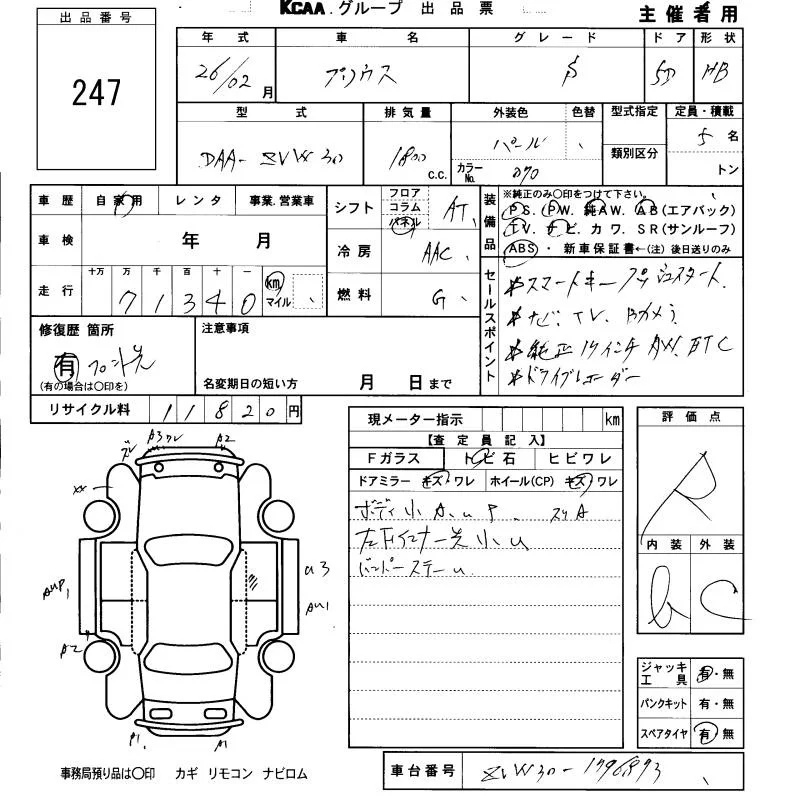 KCAA.グループ 出品票
主催者用
出品番号
247
年式 車名 グレード ドア 形状
26/02月 プリウス S 5D HB
型式 排気量 外装色 色替 型式指定 定員・積載
DAA-ZVW30 1800 c.c. パール 5名
カラーNo. 070 類別区分 トン
車歴 自家用 レンタ 事業.営業車
シフト フロア コラム パネル AT
装備品 ※純正のみ○印をつけて下さい。
PS. PW. 純AW. AB(エアバック)
TV. ナビ. カワ. SR(サンルーフ)
ABS ・ 新車保証書←(注) 後日送りのみ
車検 年 月
冷房 AAC
走行 十万 万 千 百 十 一
71340 km マイル
燃料 G
セールスポイント
スマートキー プッシュスタート
ナビ、TV、Bカメラ
純正17インチAW. ETC
ドライブレコーダー
修復歴 箇所
有 フロント先
(有の場合は○印を)
注意事項
名変期日の短い方 月 日まで
リサイクル料 11820円
現メーター指示 km
【査定員記入】
Fガラス トビ石 ヒビワレ
ドアミラー キズ・ワレ ホイール(CP) キズ・ワレ
ボディ小A.U P. スリA
左Fインナー先小U
バンパーステーU
評価点
R
内装 外装
b C
A3ワレ A2
ズレ
XX
U3
AUP1 AU1
A2
P1 A1
ジャッキ工具 有・無
パンクキット 有・無
スペアタイヤ 有・無
事務局預り品は○印 カギ リモコン ナビロム
車台番号 ZVW30-1796873